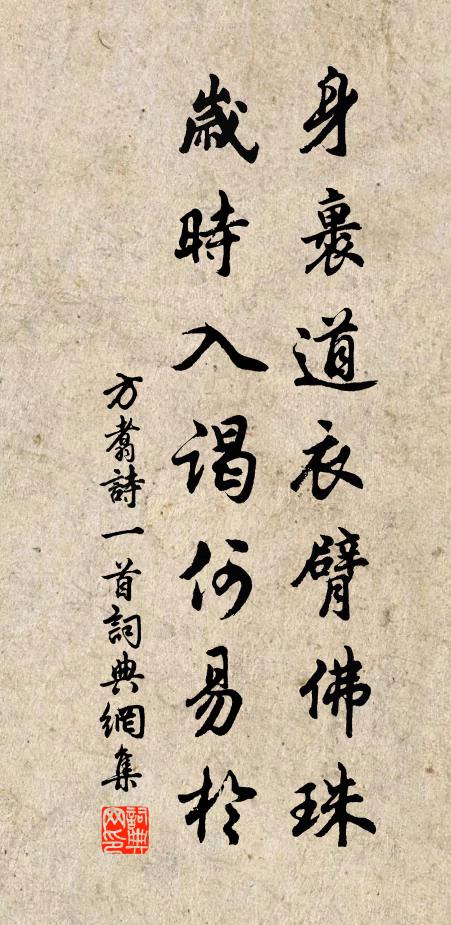 身裹道衣臂佛珠
歲時入謁何易於
方翥詩一首詞典網集
詞典網印